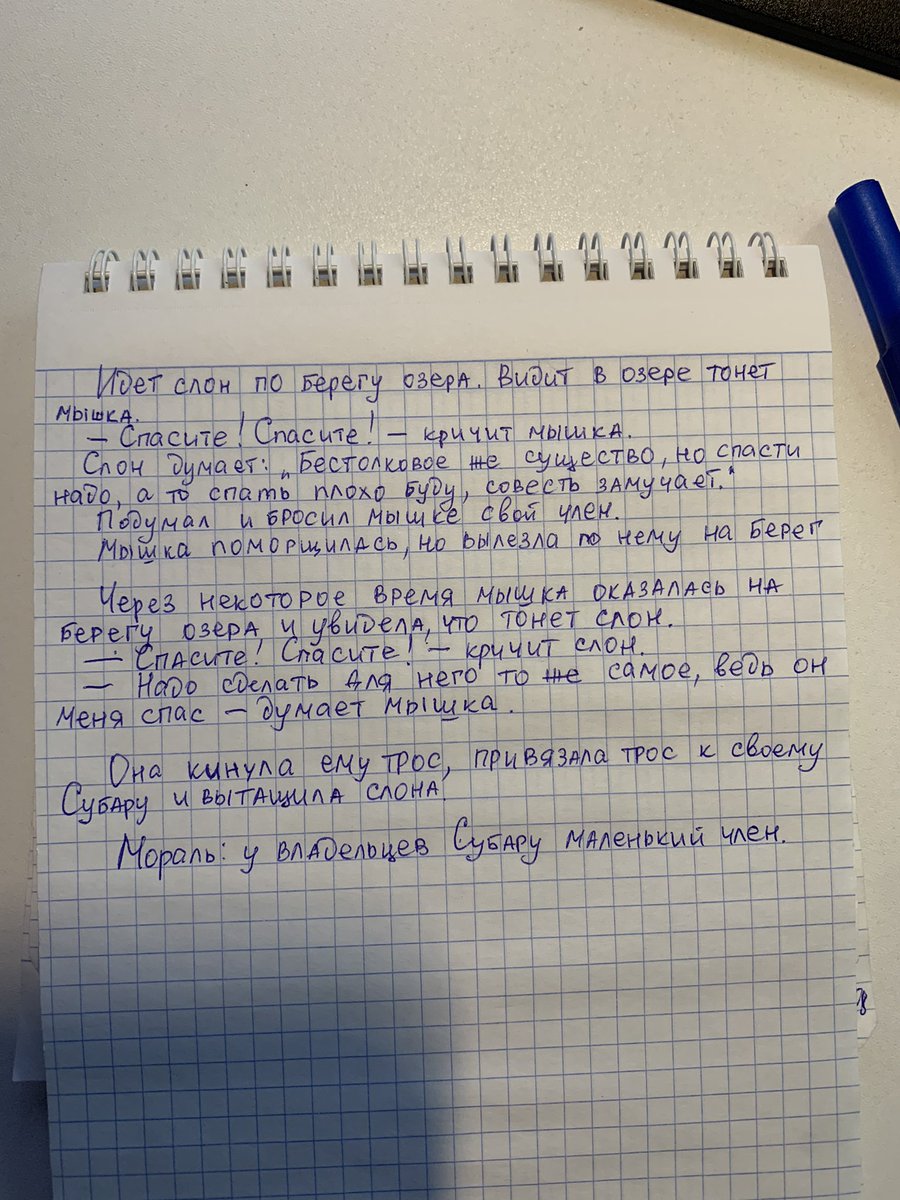 Идет слон по берегу озера. Видит в озере тонет
мышка.
— Спасите! Спасите! — кричит мышка.
Слон думает: „Бестолковое же существо, но спасти
надо, а то спать плохо буду, совесть замучает."
Подумал и бросил мышке свой член.
Мышка поморщилась, но вылезла по нему на берег
Через некоторое время мышка оказалась на
берегу озера и увидела, что тонет слон.
— Спасите! Спасите! — кричит слон.
— Надо сделать для него то же самое, ведь он
меня спас — думает мышка.
Она кинула ему трос, привязала трос к своему
Субару и вытащила слона.
Мораль: у владельцев Субару маленький член.